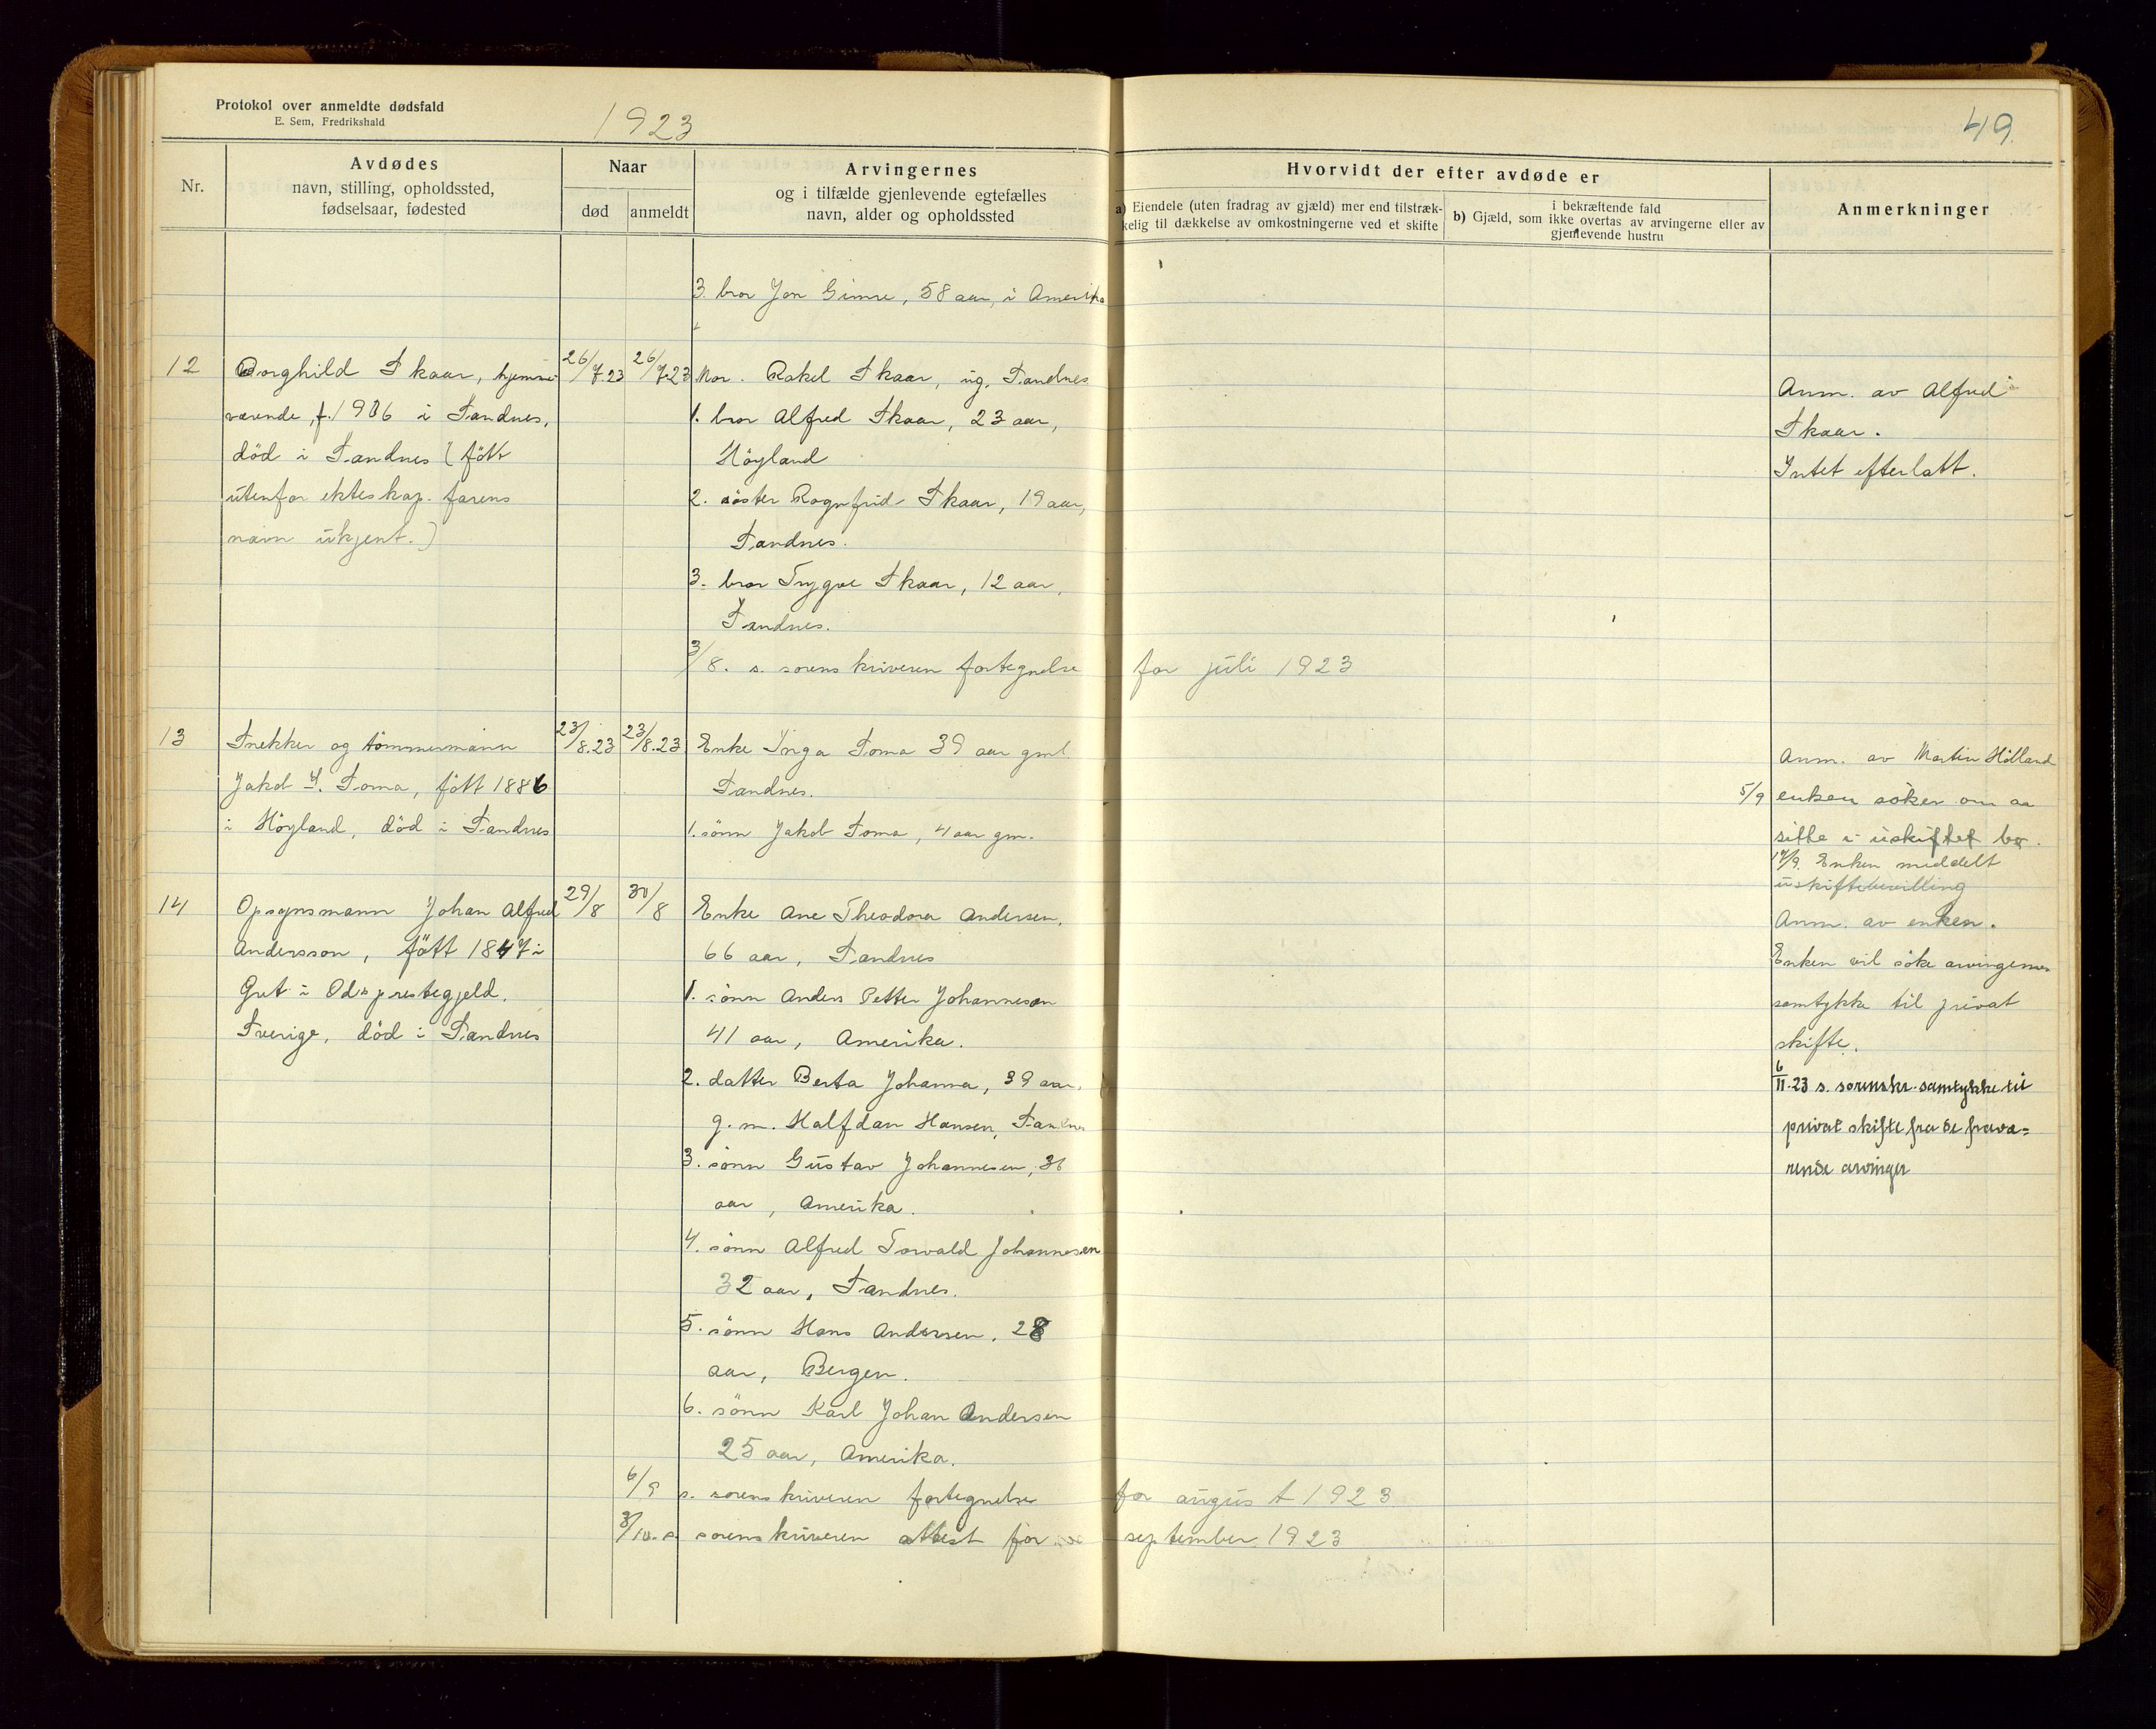 Protokol over anmeldte dødsfald
E. Sem, Fredrikshald
1923
49.
Nr.
Avdødes
navn, stilling, opholdssted,
fødselsaar, fødested
Naar
død
anmeldt
Arvingernes
og i tilfælde gjenlevende egtefælles
navn, alder og opholdssted
Hvorvidt der efter avdøde er
a) Eiendele (uten fradrag av gjæld) mer end tilstræk-
kelig til dækkelse av omkostningerne ved et skifte
i bekræftende fald
b) Gjæld, som ikke overtas av arvingerne eller av
gjenlevende hustru
Anmerkninger
3. bror Jon Gimre, 58 aar, i Amerika
12
Borghild Skaar, hjemme-
værende, f. 1906 i Sandnes,
död i Sandnes (fött
utenfor ekteskap. farens
navn ukjent.)
26/7.23
26/7.23
Mor. Rakel Skaar, ug. Sandnes
1. bror Alfred Skaar, 23 aar,
Höyland
2. söster Ragnfrid Skaar, 19 aar,
Sandnes.
3. bror Trygve Skaar, 12 aar,
Sandnes.
Anm. av Alfred
Skaar.
Intet efterlatt.
3/8. s. sorenskriveren fortegnelse for juli 1923
13
Snekker og tömmermann
Jakob S. Soma, fött 1886
i Höyland, död i Sandnes
23/8.23
23/8.23
Enke Inga Soma 39 aar gml.
Sandnes.
1. sönn Jakob Soma, 4 aar gm.
Anm. av Martin Hölland
5/9 enken söker om aa
sitte i uskiftet bo.
17/9. Enken meddelt
uskiftebevilling
14
Opsynsmann Johan Alfred
Andersson, fött 1847 i
i Ods prestegjeld.
Sverige, död i Sandnes
29/8
30/8
Enke Ane Theodora Andersen,
66 aar, Sandnes
1. sönn Anders Petter Johannesen
41 aar, Amerika.
2. datter Berta Johanna, 39 aar,
g. m. Halfdan Hansen, Sandnes
3. sönn Gustav Johannesen, 36
aar, Amerika.
4. sönn Alfred Torvald Johannesen
32 aar, Sandnes.
5. sönn Hans Andersen, 28
aar, Bergen.
6. sönn Karl Johan Andersen
25 aar, Amerika.
Anm. av enken.
Enken vil söke arvingenes
samtykke til privat
skifte.
6/11.23 s. sorenskr. samtykke til
privat skifte fra de fravæ=
rende arvinger
6/9 s. sorenskriveren fortegnelse for august 1923
3/10. s. sorenskriveren attest for september 1923